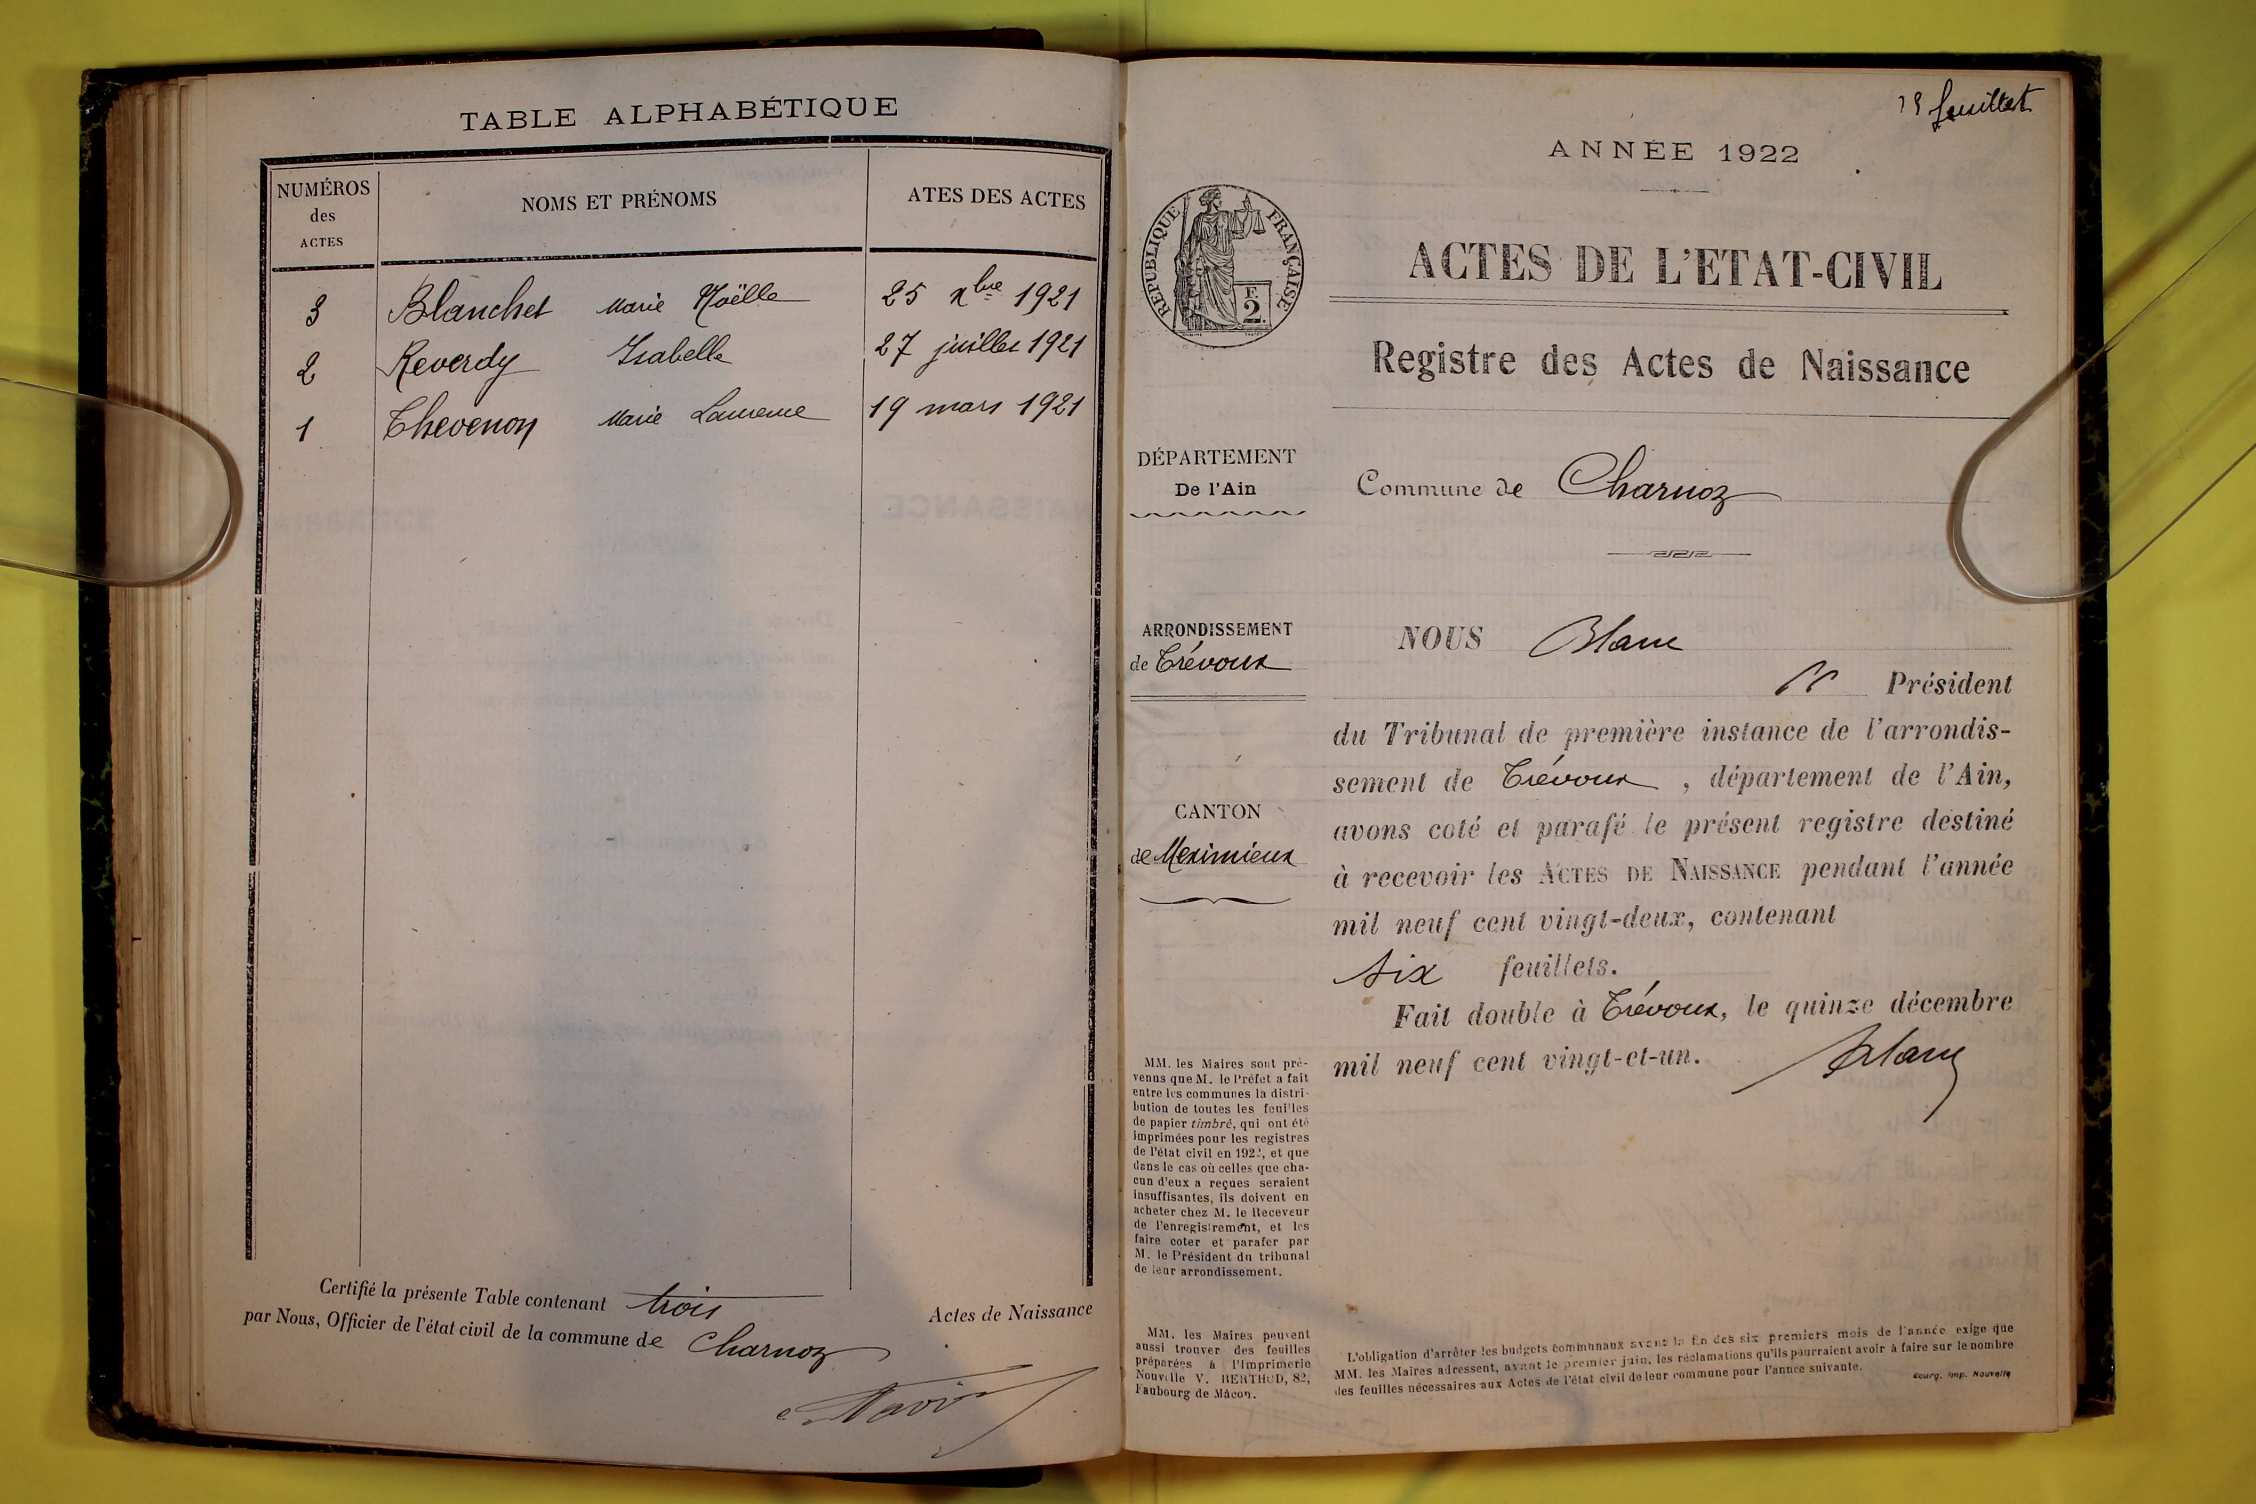 TABLE ALPHABÉTIQUE
NUMÉROS
des
ACTES
NOMS ET PRÉNOMS
ATES DES ACTES
3 Blanchet Marie Noëlle 25 xbre 1921
2 Reverdy Isabelle 27 juillet 1921
1 Thevenon Marie Laurence 19 mars 1921
Certifié la présente Table contenant trois Actes de Naissance
par Nous, Officier de l'état civil de la commune de Charnoz
feuillet
ANNÉE 1922
RÉPUBLIQUE FRANÇAISE
F.
2.
ACTES DE L'ETAT-CIVIL
Registre des Actes de Naissance
DÉPARTEMENT
De l'Ain
Commune de Charnoz
ARRONDISSEMENT
de Trévoux
CANTON
de Meximieux
NOUS Blanc
Président
du Tribunal de première instance de l'arrondis-
sement de Trévoux, département de l'Ain,
avons coté et parafé le présent registre destiné
à recevoir les ACTES DE NAISSANCE pendant l'année
mil neuf cent vingt-deux, contenant
six feuillets.
Fait double à Trévoux, le quinze décembre
mil neuf cent vingt-et-un.
Blanc
MM. les Maires sont pré-
venus que M. le Préfet a fait
entre les communes la distri-
bution de toutes les feuilles
de papier timbré, qui ont été
imprimées pour les registres
de l'état civil en 1922, et que
dans le cas où celles que cha-
cun d'eux a reçues seraient
insuffisantes, ils doivent en
acheter chez M. le Receveur
de l'enregistrement, et les
faire coter et parafer par
M. le Président du tribunal
de leur arrondissement.
MM. les Maires peuvent
aussi trouver des feuilles
préparées à l'Imprimerie
Nouvelle V. BERTHOD, 82,
Faubourg de Mâcon.
L'obligation d'arrêter les budgets communaux avant la fin des six premiers mois de l'année exige que
MM. les Maires adressent, avant le premier juin, les réclamations qu'ils pourraient avoir à faire sur le nombre
des feuilles nécessaires aux Actes de l'état civil de leur commune pour l'année suivante.
Bourg, Imp. Nouvelle